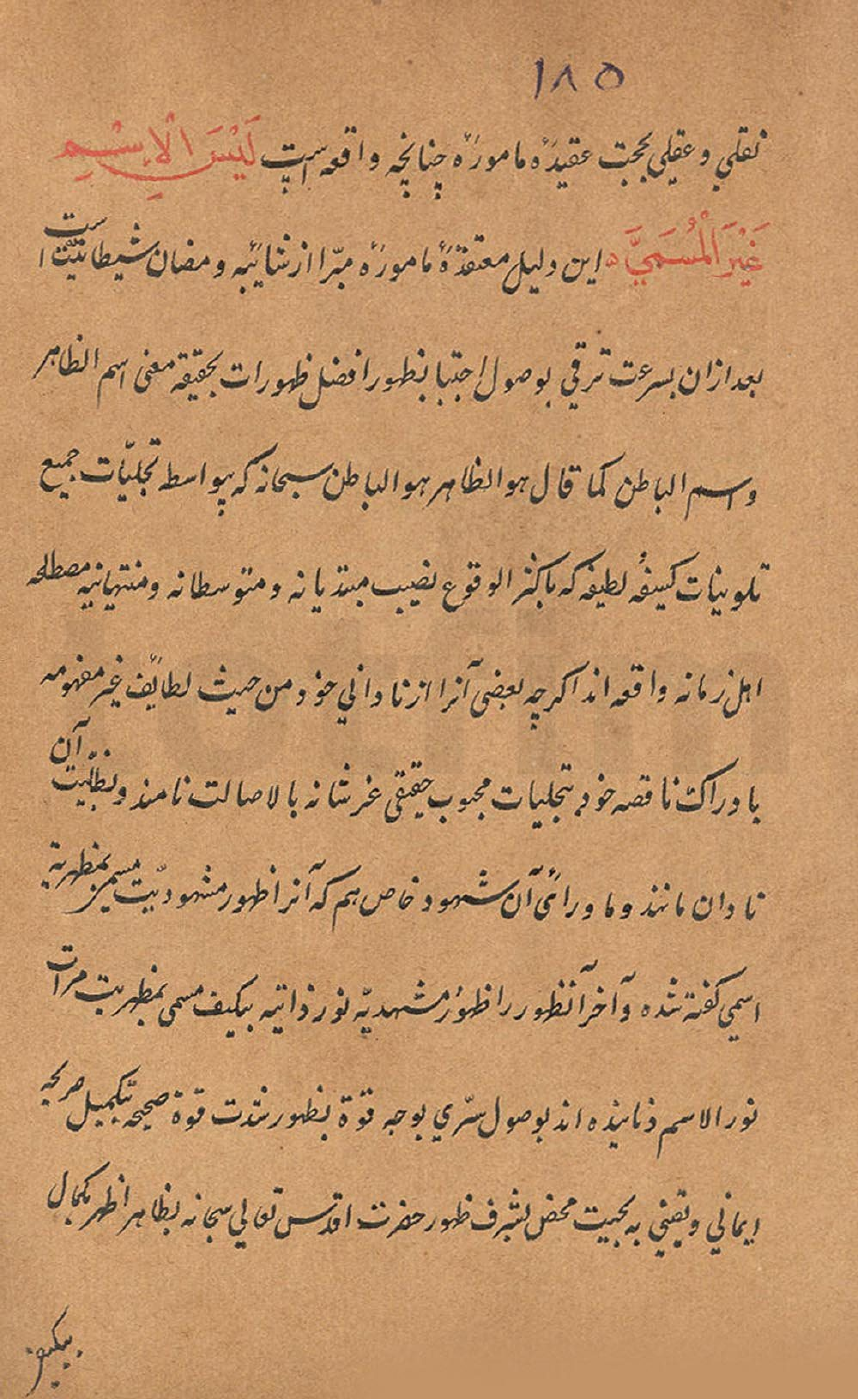 ۱۸۵
نقلي و عقلي بحجت عقیدۀ مامورۀ چنانچه واقعه است لَيْسَ الْاِسْمِ
غَيْرَ الْمُسَمَيَّ ه این دلیل معتقدۀ مامورۀ مبّرا از شایٔبه و مضان شیطانیّت است
بعد ازان بسرعت ترقي بوصول اجتبا بظهور افضل ظهورات بحقیقه معنی اسم الظاهر
و اسم الباطن کما قال هو الظاهر هو الباطن سبحانه که بواسطه تجلیّات جمیع
تلوینات کسیفهٔ لطیفه که باکثر الوقوع نصیب مبتدیانه و متوسطانه و منتهیانیه مصطلحه
اهل زمانه واقعه اند اکرچه بعضی آنرا از ناداني خود من حیث لطایٔف غیر مفهومه
بادراک ناقصه خود بتجلیات محبوب حقیقی عزشانه بالاصالت نامند و بظلیّت آن
نادان مانند و ماورائ آن شهود خاص هم که آنرا ظهور مشهودیّت بمظهریة
اسمي کفته شده و آخر آنظهور را ظهور مشهدیّه نور ذاتیه بیکیف مسمی بمظهریت مرات
نور الاسم اند بوصول سّري بوجه قوة بظهور شدت قوة صحیحه بتکمیل صریحه
ایماني و یقیني به بحیت محض بشرف ظهور حضرت اقدس تعالي سبحانه بظاهر اظهر بکمال
بیکیف